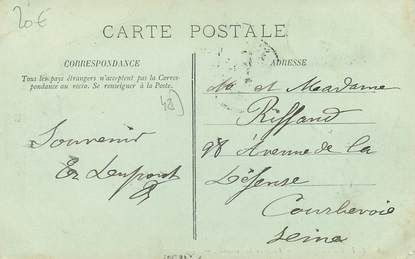 20€
CARTE POSTALE
CORRESPONDANCE
Tous les pays étrangers n'acceptent pas la Corres-
pondance au recto. Se renseigner à la Poste.
42)
Souvenir
Dupont
ADRESSE
Mr et Madame
Riffaud
98 Avenue de la
Défense
Courbevoie
Seine